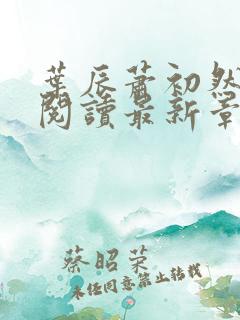 葉辰蕭初然
閱讀最新章
蔡昭荣
未经同意禁止转载